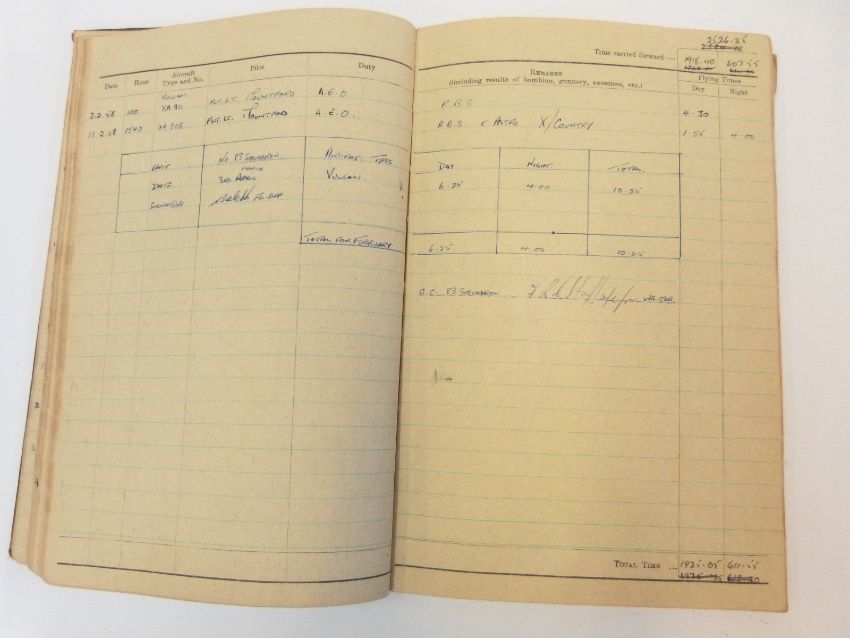 Date Hour Aircraft Type and No. Pilot Duty
VULCAN
7.2.58 1110 XA 911 FLT. LT. MOUNTFORD A.E.O
11.2.58 1540 XA 908 FLT. LT. MOUNTFORD A.E.O.
UNIT No 83 SQUADRON AIRCRAFT TYPES
MARCH
DATE 3RD APRIL VULCAN.
SIGNATURE FG. OFF.
TOTAL FOR FEBRUARY
2526-35
Time carried forward — 1918-40 607-55
REMARKS
(including results of bombing, gunnery, exercises, etc.)
Flying Times
Day Night
R.B.S 4-30
R.B.S & ASTRO X/COUNTRY 1-55 4-00
DAY NIGHT. TOTAL.
6-25 4-00 10-25
6-25 4-00 10-25
O.C. 83 SQUADRON WG. CDR.
TOTAL TIME ... 1925-05 611-55